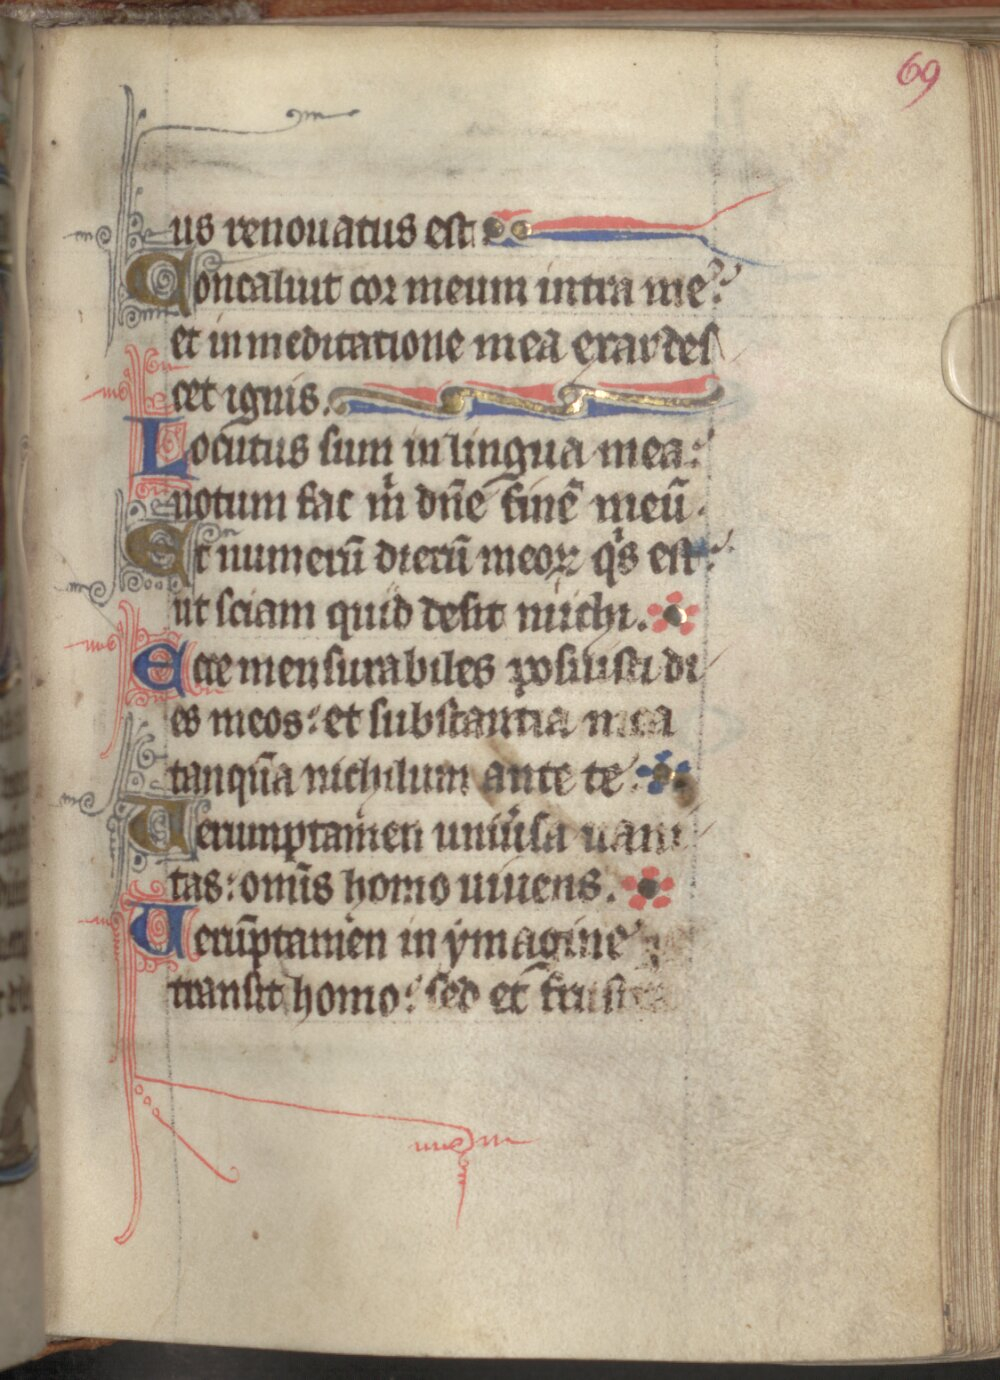 69
us renouatus est
Concaluit cor meum intra me:
et in meditatione mea exardes
cet ignis.
Locutus sum in lingua mea:
notum fac m̍ dn̄e finē meū.
Et numerū dierū meoꝝ q̍s est:
ut sciam quid desit michi.
Ecce mensurabiles posuisti di
es meos: et substantia mea
tanqūa nichilum ante te.
Uerumptamen uniūsa uani
tas: omīs homo uiuens.
Uerūptamen in ymagine
transit homo: sed et frustra